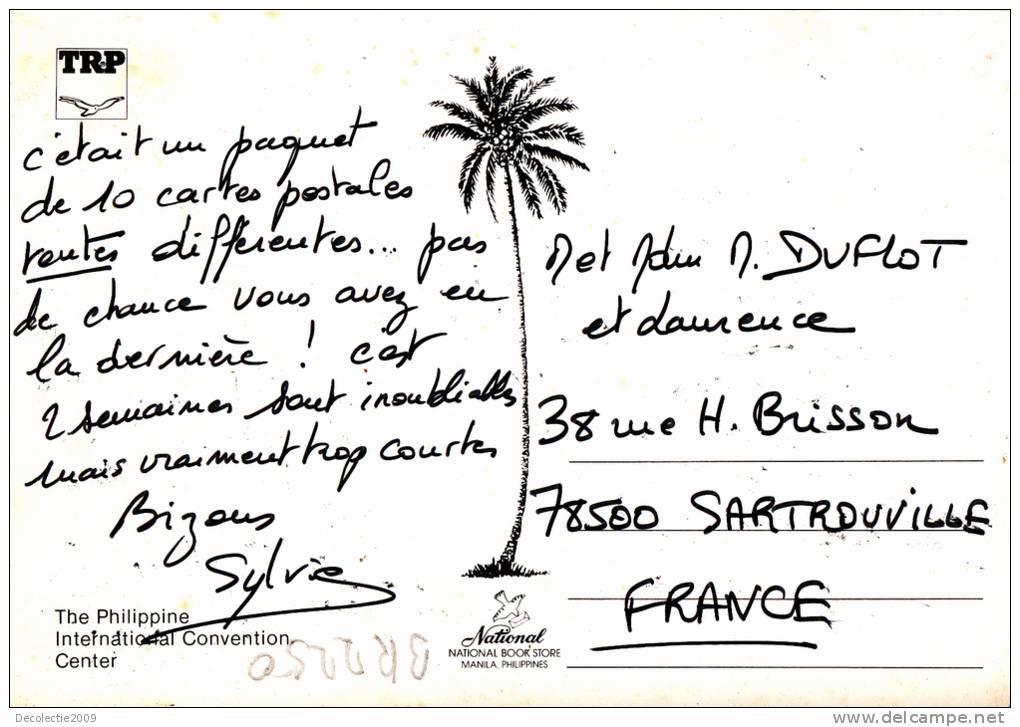 TRP
c'était un paquet
de 10 cartes postales
toutes différentes... pas
de chance vous avez eu
la dernière ! ces
2 semaines sont inoubliables
mais vraiment trop courtes
Bizous
Sylvie
The Philippine
International Convention
Center
National
NATIONAL BOOK STORE
MANILA, PHILIPPINES
M et M. DUFLOT
et Laurence
38 rue H. Brisson
78500 SARTROUVILLE
FRANCE
BR2250
Decolectie2009
http://www.delcampe.net